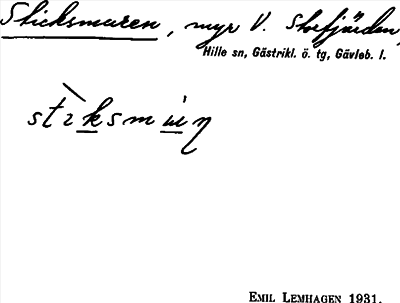 Sticksmuren, myr V. Storfjärden,
Hille sn, Gästrikl. ö. tg, Gävleb. l.
EMIL LEMHAGEN 1931.